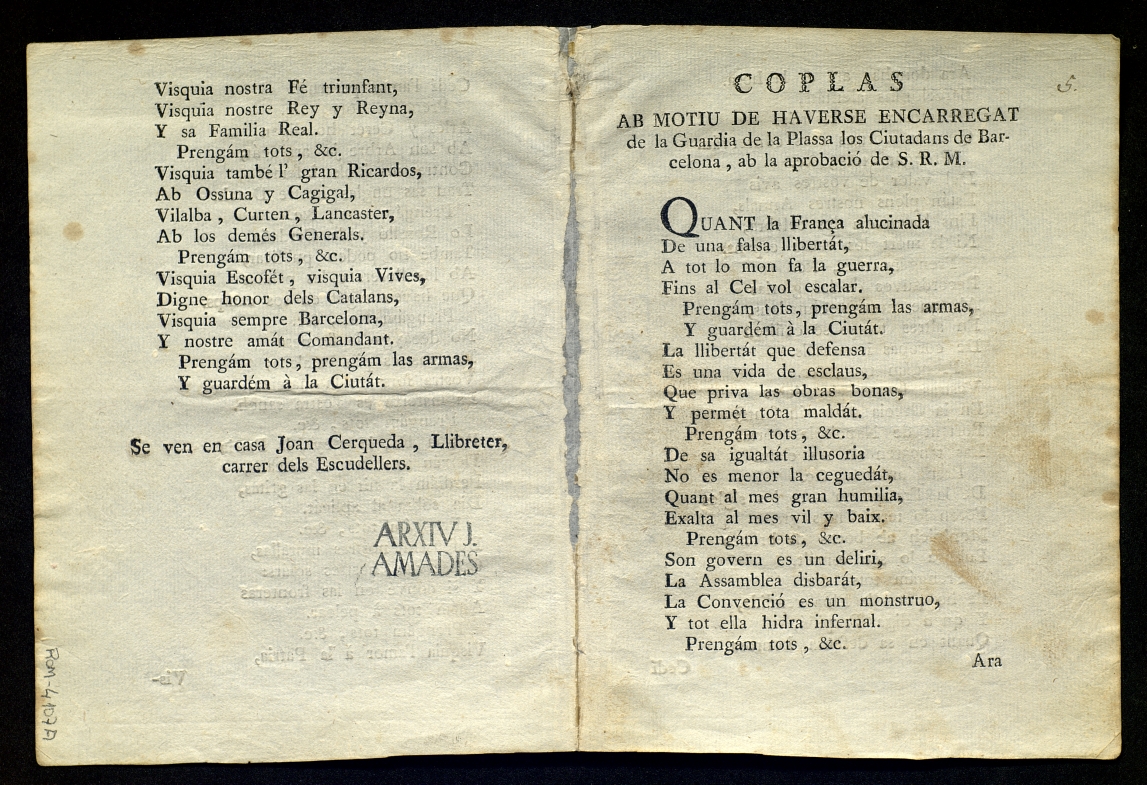 Visquia nostra Fé triunfant,
Visquia nostre Rey y Reyna,
Y sa Familia Real.
Prengám tots, &c.
Visquia també l' gran Ricardos,
Ab Ossuna y Cagigal,
Vilalba, Curten, Lancaster,
Ab los demés Generals.
Prengám tots, &c.
Visquia Escofét, visquia Vives,
Digne honor dels Catalans,
Visquia sempre Barcelona,
Y nostre amát Comandant.
Prengám tots, prengám las armas,
Y guardém à la Ciutát.
Se ven en casa Joan Cerqueda, Llibreter,
carrer dels Escudellers.
ARXIV J.
AMADES
ROM-4.107A
COPLAS
5.
AB MOTIU DE HAVERSE ENCARREGAT
de la Guardia de la Plassa los Ciutadans de Bar-
celona, ab la aprobació de S. R. M.
QUANT la França alucinada
De una falsa llibertát,
A tot lo mon fa la guerra,
Fins al Cel vol escalar.
Prengám tots, prengám las armas,
Y guardém à la Ciutát.
La llibertát que defensa
Es una vida de esclaus,
Que priva las obras bonas,
Y permét tota maldát.
Prengám tots, &c.
De sa igualtát illusoria
No es menor la ceguedát,
Quant al mes gran humilia,
Exalta al mes vil y baix.
Prengám tots, &c.
Son govern es un deliri,
La Assamblea disbarát,
La Convenció es un monstruo,
Y tot ella hidra infernal.
Prengám tots, &c.
Ara